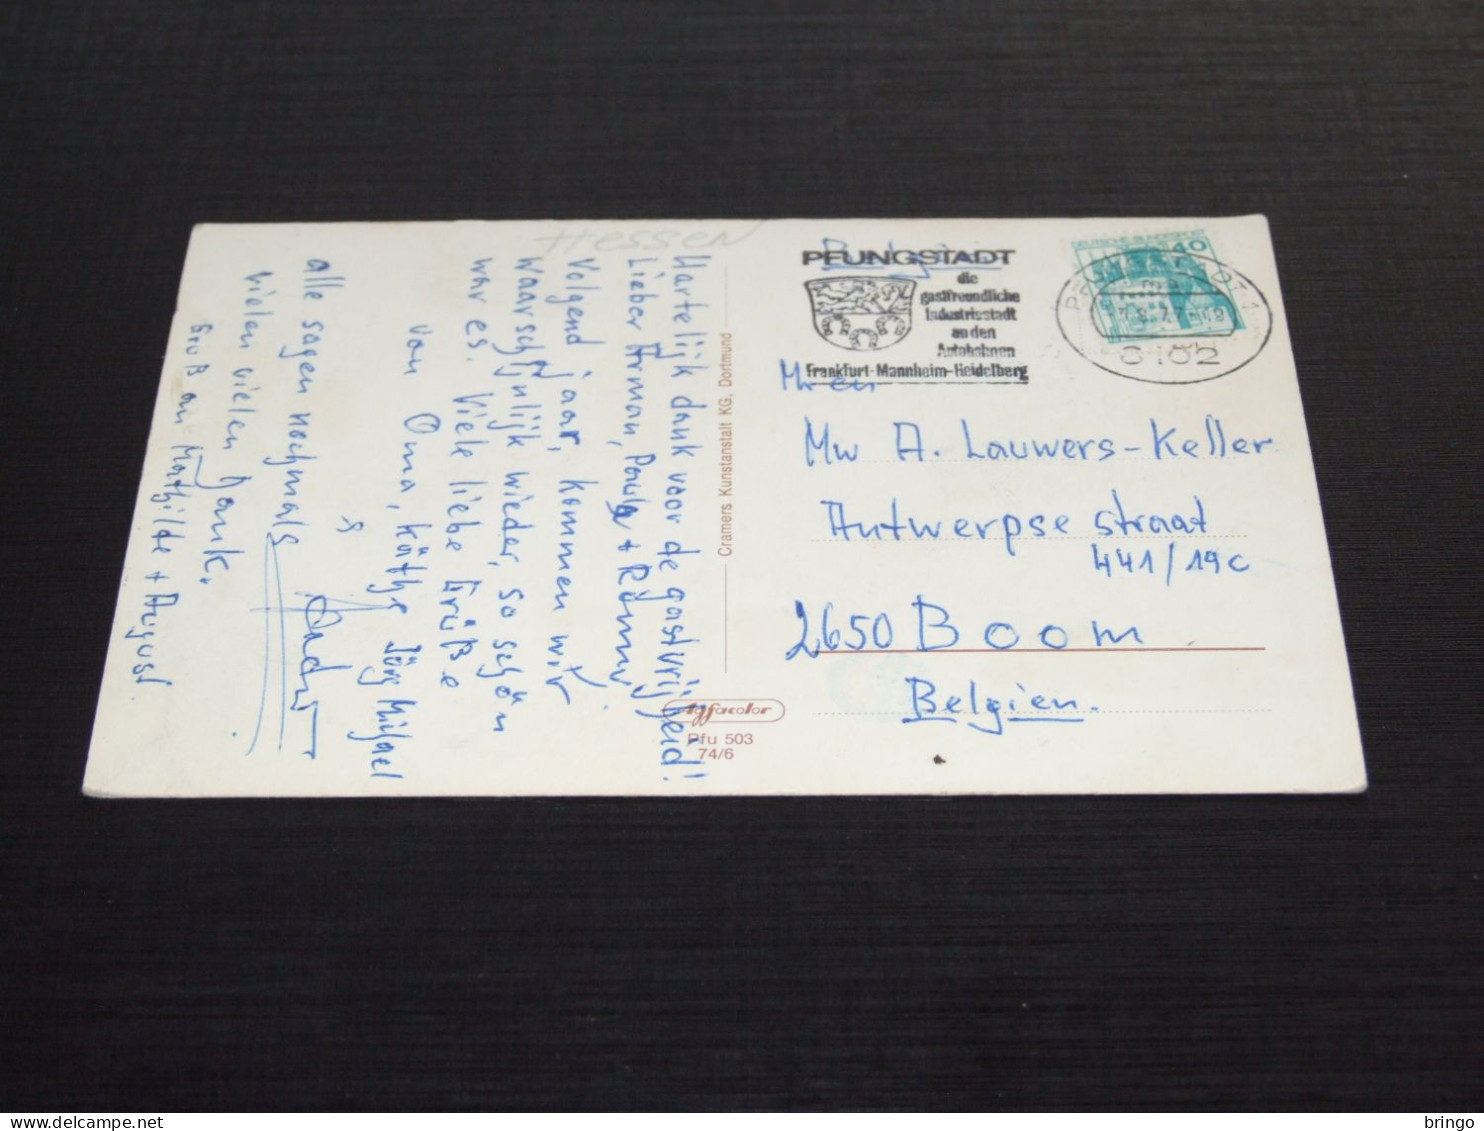 Hessen
Hartelijk dank voor de gastvrijheid!
Lieber Arman, Paula + Rommi
Volgend jaar, kommen wir
waarschijnlijk wieder, so schön
war es. Viele liebe Grüße
von Oma, Käthe Jörg Michael
&
alle sagen nochmals
vielen vielen Dank.
Gruß an Mathilde + August.
Cramers Kunstanstalt KG, Dortmund
Agfacolor
Pfu 503
74/6
PFUNGSTADT
die
gastfreundliche
Industriestadt
an den
Autobahnen
Frankfurt-Mannheim-Heidelberg
DEUTSCHE BUNDESPOST
40
6102
Mw A. Lauwers-Keller
Antwerpse straat
441/19c
2650 Boom
Belgien.
delcampe.net
bringo